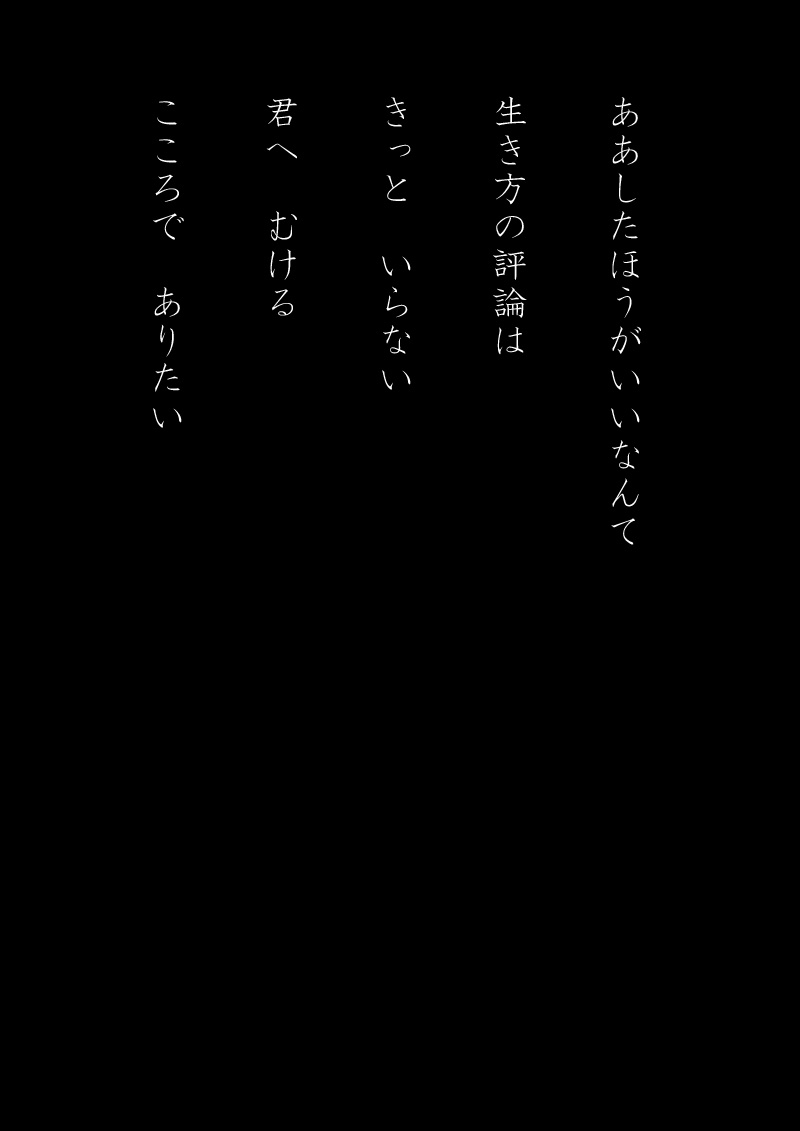 ああしたほうがいいなんて
生き方の評論は
きっと　いらない
君へ　むける
こころで　ありたい